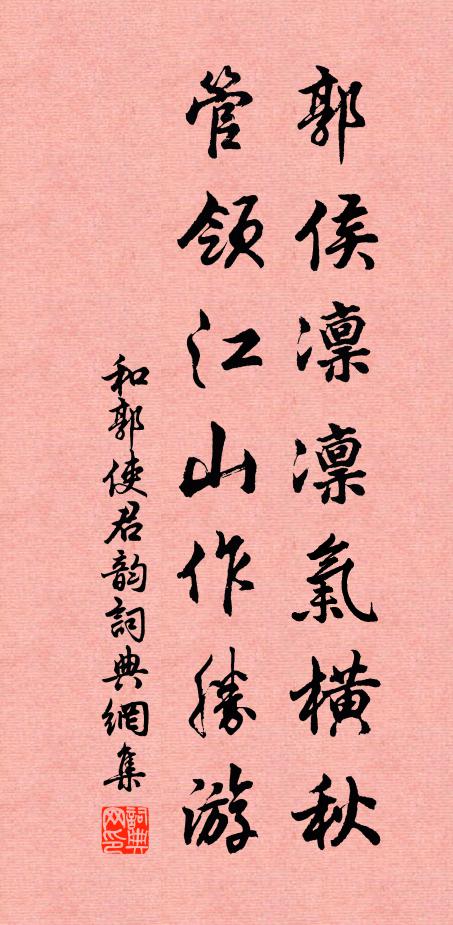 郭侯凛凛氣橫秋
管領江山作勝游
和郭使君韵詞典網集
詞典网印